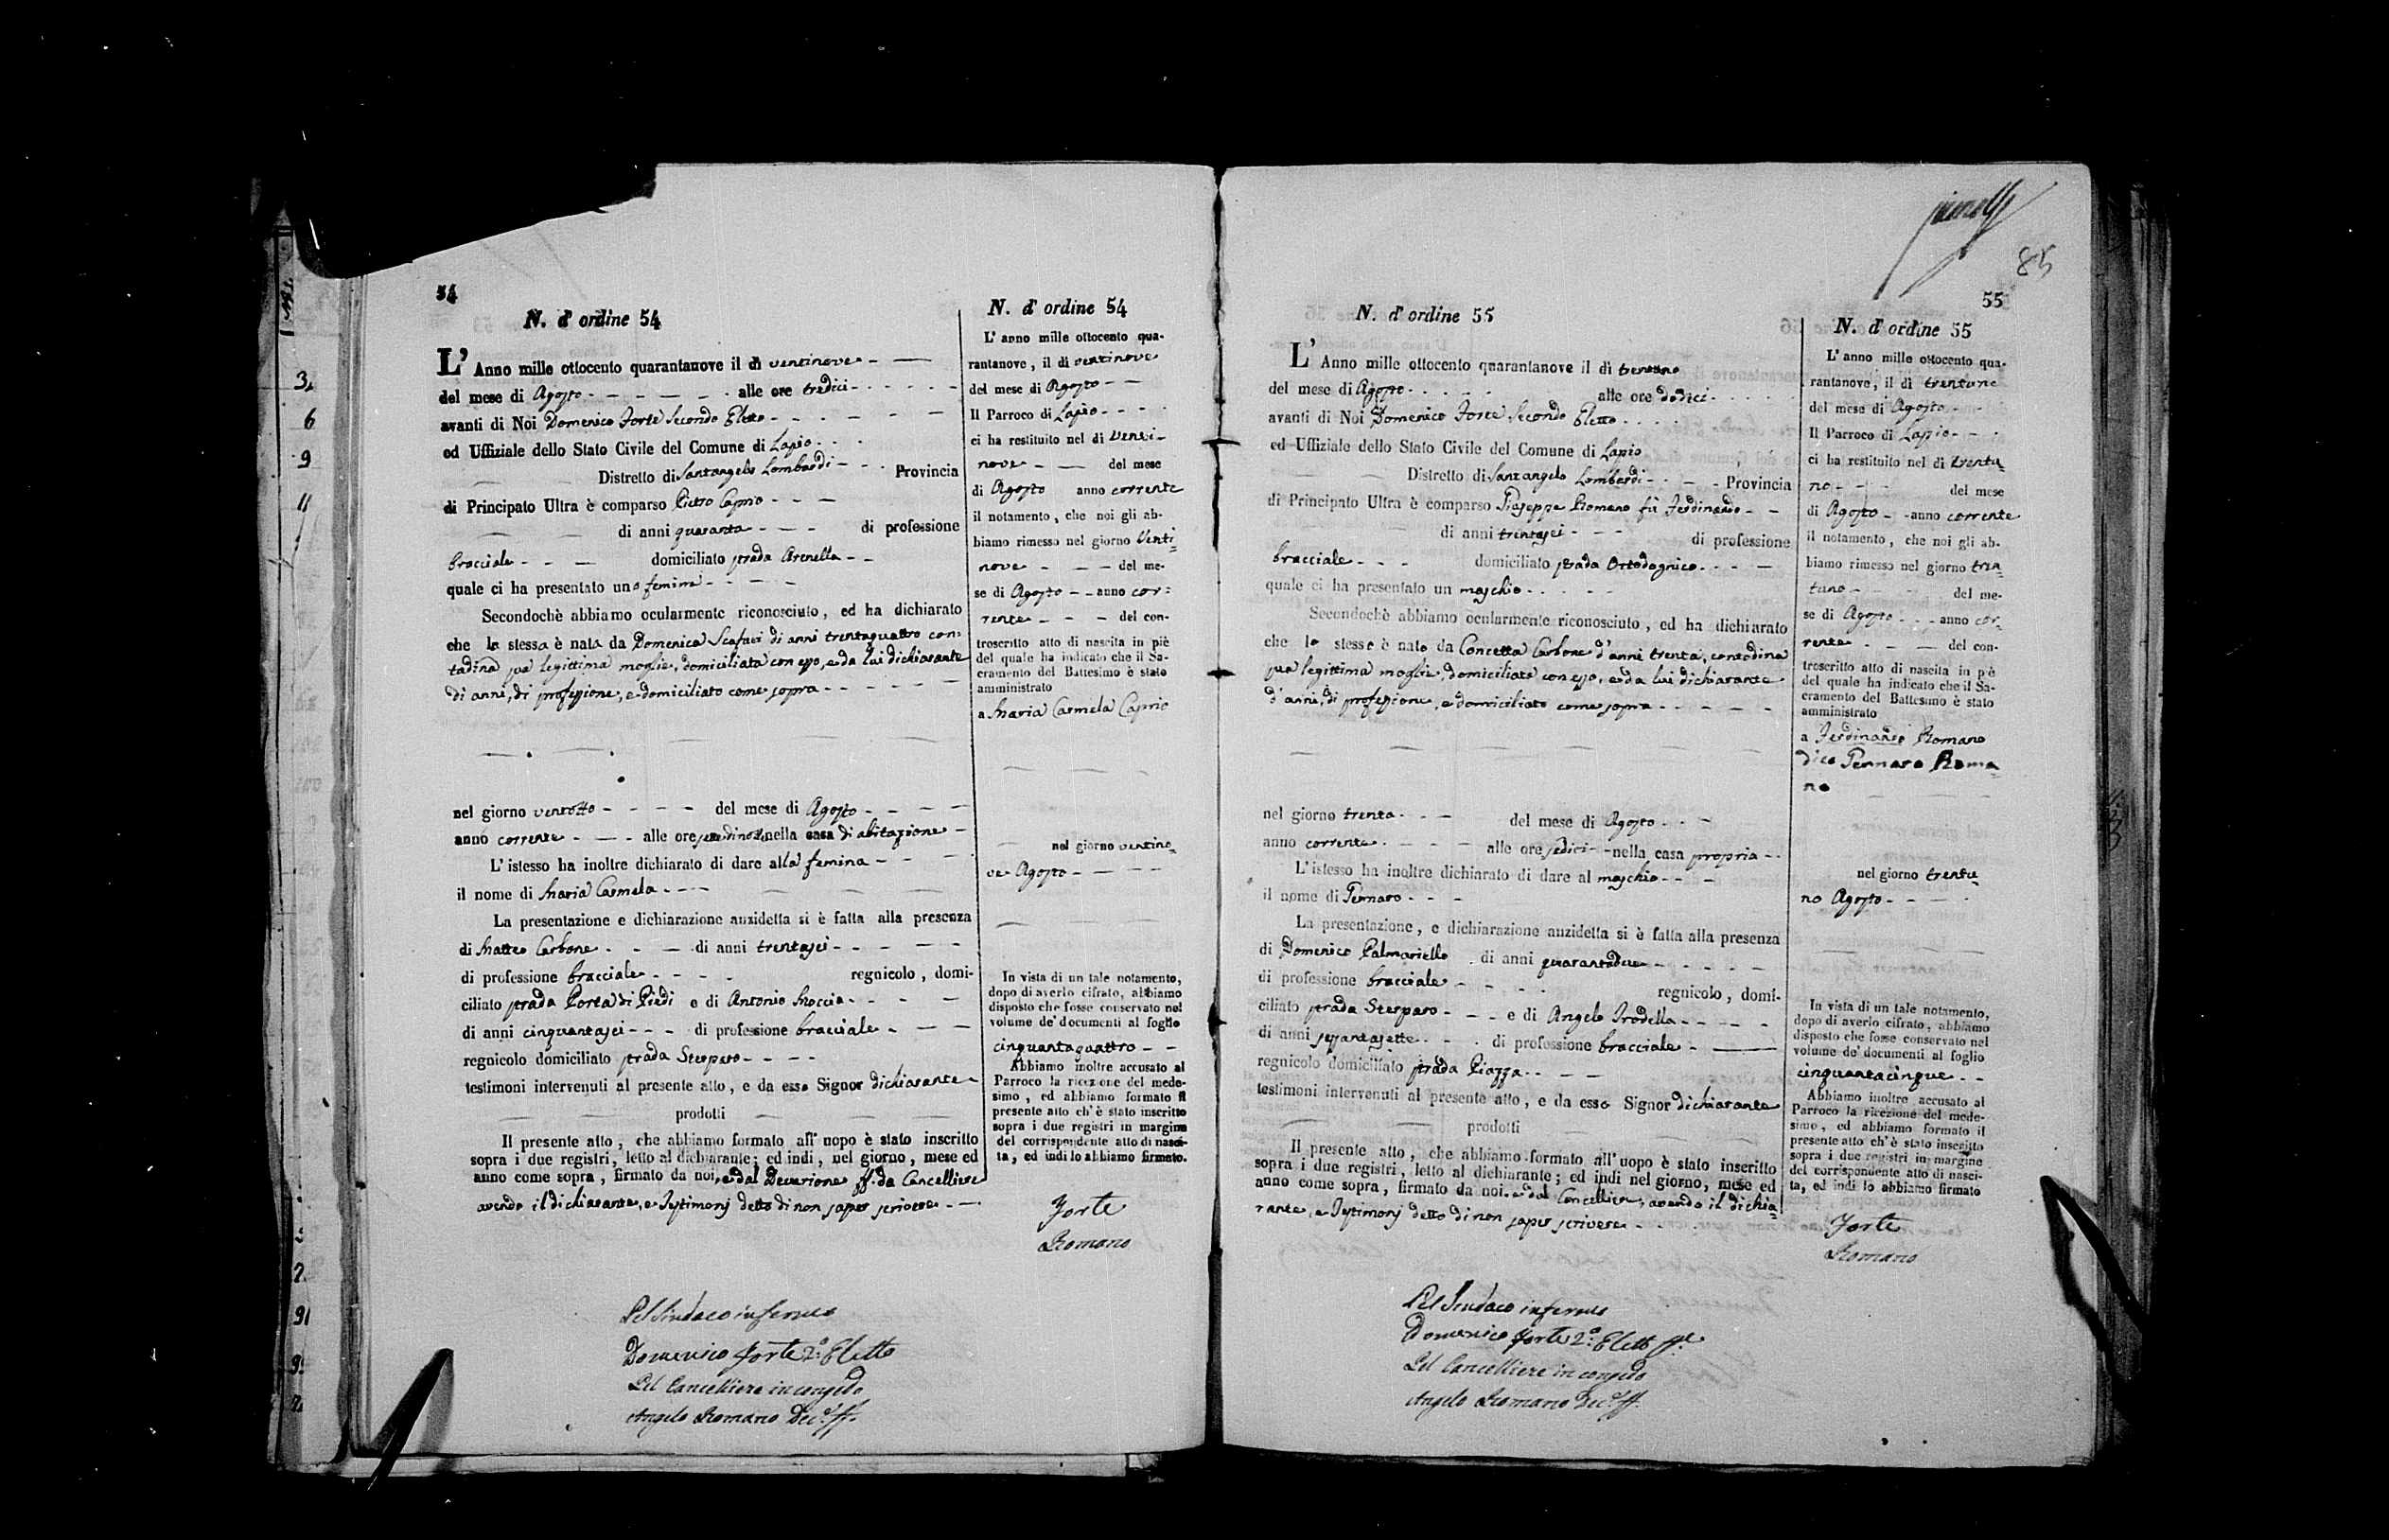 54
N. d' ordine 54
L' Anno mille ottocento quarantanove il dì ventinove
del mese di Agosto alle ore tredici
avanti di Noi Domenico Forte Secondo Eletto
ed Uffiziale dello Stato Civile del Comune di Lapio
Distretto di Santangelo Lombardi Provincia
di Principato Ultra è comparso Pietro Caprio
di anni quaranta di professione
bracciale domiciliato strada Arenella
quale ci ha presentato una femina
Secondochè abbiamo ocularmente riconosciuto, ed ha dichiarato
che la stessa è nata da Domenica Scafuri di anni trentaquattro con-
tadina sua legittima moglie, domiciliata con esso, e da lui dichiarante
di anni, di professione, e domiciliato come sopra
nel giorno ventotto del mese di Agosto
anno corrente alle ore nella casa di abitazione
L' istesso ha inoltre dichiarato di dare alla femina
il nome di Maria Carmela
La presentazione e dichiarazione anzidetta si è fatta alla presenza
di Matteo Carbone di anni trentasei
di professione bracciale regnicolo, domi-
ciliato strada Porta di Piedi e di Antonio Moccia
di anni cinquantasei di professione bracciale
regnicolo domiciliato strada Sterparo
testimoni intervenuti al presente atto, e da esso Signor dichiarante
prodotti
Il presente atto, che abbiamo formato all' uopo è stato inscritto
sopra i due registri, letto al dichiarante; ed indi, nel giorno, mese ed
anno come sopra, firmato da noi, e dal Decurione ff. da Cancelliere
avendo il dichiarante, e Testimonj detto di non saper scrivere
Pel Sindaco infermo
Domenico Forte 2.º Eletto
Pel Cancelliere in congedo
Angelo Romano Dec.º ff.
N. d' ordine 54
L' anno mille ottocento qua-
rantanove, il di ventinove
del mese di Agosto
Il Parroco di Lapio
ci ha restituito nel dì venti-
nove del mese
di Agosto anno corrente
il notamento, che noi gli ab-
biamo rimesso nel giorno venti-
nove del me-
se di Agosto anno cor-
rente del con-
troscritto atto di nascita in piè
del quale ha indicato che il Sa-
cramento del Battesimo è stato
amministrato
a Maria Carmela Caprio
nel giorno ventino-
ve Agosto
In vista di un tale notamento,
dopo di averlo cifrato, abbiamo
disposto che fosse conservato nel
volume de' documenti al foglio
cinquantaquattro
Abbiamo inoltre accusato al
Parroco la ricezione del mede-
simo, ed abbiamo formato il
presente atto ch' è stato inscritto
sopra i due registri in margine
del corrispondente atto di nasci-
ta, ed indi lo abbiamo firmato.
Forte
Romano
85
55
N. d' ordine 55
L' Anno mille ottocento quarantanove il dì trentuno
del mese di Agosto alle ore dodici
avanti di Noi Domenico Forte Secondo Eletto
ed Uffiziale dello Stato Civile del Comune di Lapio
Distretto di Santangelo Lombardi Provincia
di Principato Ultra è comparso Giuseppe Romano fu Ferdinando
di anni trentasei di professione
bracciale domiciliato strada Ortodagnico
quale ci ha presentato un maschio
Secondochè abbiamo ocularmente riconosciuto, ed ha dichiarato
che lo stesso è nato da Concetta Carbone d'anni trenta, contadina
sua legittima moglie, domiciliata con esso, e da lui dichiarante
d'anni, di professione, e domiciliato come sopra
nel giorno trenta del mese di Agosto
anno corrente alle ore sedici nella casa propria
L' istesso ha inoltre dichiarato di dare al maschio
il nome di Gennaro
La presentazione, e dichiarazione anzidetta si è fatta alla presenza
di Domenico Palmariello di anni quarantadue
di professione bracciale regnicolo, domi-
ciliato strada Sterparo e di Angelo Trodella
di anni sessantasette di professione bracciale
regnicolo domiciliato strada Piazza
testimoni intervenuti al presente atto, e da esso Signor dichiarante
prodotti
Il presente atto, che abbiamo formato all' uopo è stato inscritto
sopra i due registri, letto al dichiarante; ed indi nel giorno, mese ed
anno come sopra, firmato da noi, e dal Cancelliere, avendo il dichia-
rante, e Testimonj detto di non saper scrivere
Pel Sindaco infermo
Domenico Forte 2.º Eletto ff.
Pel Cancelliere in congedo
Angelo Romano Dec.º ff.
N. d' ordine 55
L' anno mille ottocento qua-
rantanove, il dì trentuno
del mese di Agosto
Il Parroco di Lapio
ci ha restituito nel dì trentu-
no del mese
di Agosto anno corrente
il notamento, che noi gli ab-
biamo rimesso nel giorno tren-
tuno del me-
se di Agosto anno cor-
rente del con-
troscritto atto di nascita in piè
del quale ha indicato che il Sa-
cramento del Battesimo è stato
amministrato
a Ferdinando Romano
dico Gennaro Roma-
no
nel giorno trentu-
no Agosto
In vista di un tale notamento,
dopo di averlo cifrato, abbiamo
disposto che fosse conservato nel
volume de' documenti al foglio
cinquantacinque
Abbiamo inoltre accusato al
Parroco la ricezione del mede-
simo, ed abbiamo formato il
presente atto ch' è stato inscritto
sopra i due registri in margine
del corrispondente atto di nasci-
ta, ed indi lo abbiamo firmato
Forte
Romano